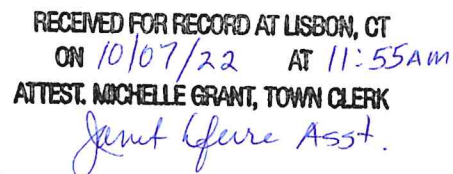 RECEIVED FOR RECORD AT LISBON, CT
ON 10/07/22 AT 11:55AM
ATTEST. MICHELLE GRANT, TOWN CLERK
Janet Asst.